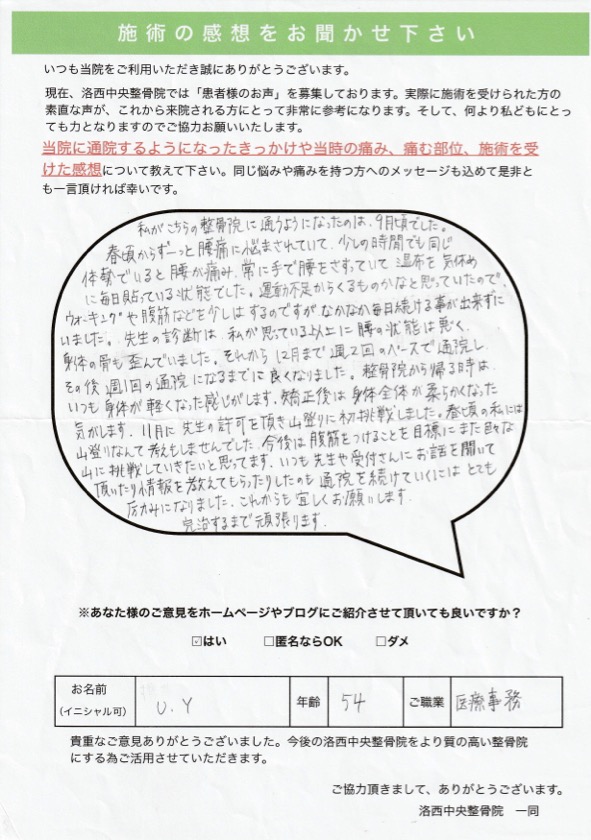 施術の感想をお聞かせ下さい
いつも当院をご利用いただき誠にありがとうございます。
現在、洛西中央整骨院では「患者様のお声」を募集しております。実際に施術を受けられた方の
素直な声が、これから来院される方にとって非常に参考になります。そして、何より私どもにとっ
ても力となりますのでご協力お願いいたします。
当院に通院するようになったきっかけや当時の痛み、痛む部位、施術を受
けた感想について教えて下さい。同じ悩みや痛みを持つ方へのメッセージも込めて是非と
も一言頂ければ幸いです。
私がこちらの整骨院に通うようになったのは、9月頃でした。
春頃からずーっと腰痛に悩まされていて、少しの時間でも同じ
体勢でいると腰が痛み、常に手で腰をさすっていて湿布を気休め
に毎日貼っている状態でした。運動不足からくるものかなと思っていたので、
ウォーキングや腹筋などを少しはするのですがなかなか毎日続ける事が出来ずに
いました。先生の診断は、私が思っている以上に腰の状態は悪く、
身体の骨も歪んでいました。それから12月まで週2回のペースで通院し、
その後週1回の通院になるまでに良くなりました。整骨院から帰る時は、
いつも身体が軽くなった感じがします。矯正後は身体全体が柔らかくなった
気がします。11月に先生の許可を頂き山登りに初挑戦しました。春頃の私には
山登りなんて考えもしませんでした。今後は腹筋をつけることを目標にまた色々な
山に挑戦していきたいと思ってます。いつも先生や受付さんにお話を聞いて
頂いたり情報を教えてもらったりしたのも通院を続けていくにはとても
励みになりました。これからも宜しくお願いします。
完治するまで頑張ります。
※あなた様のご意見をホームページやブログにご紹介させて頂いても良いですか?
☑はい □匿名ならOK □ダメ
お名前
(イニシャル可) U.Y 年齢 54 ご職業 医療事務
貴重なご意見ありがとうございました。今後の洛西中央整骨院をより質の高い整骨院
にする為ご活用させていただきます。
ご協力頂きまして、ありがとうございます。
洛西中央整骨院 一同